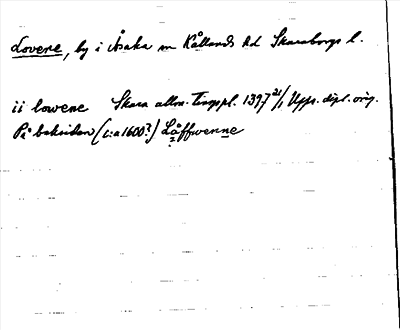 Lovene, by i Åsaka sn Kållands hd Skaraborgs l.
ii lowene Skara allm. Tingspl. 1397 21/1 Upps. dipl. orig.
På baksidan (c:a 1600?) Låffwenne